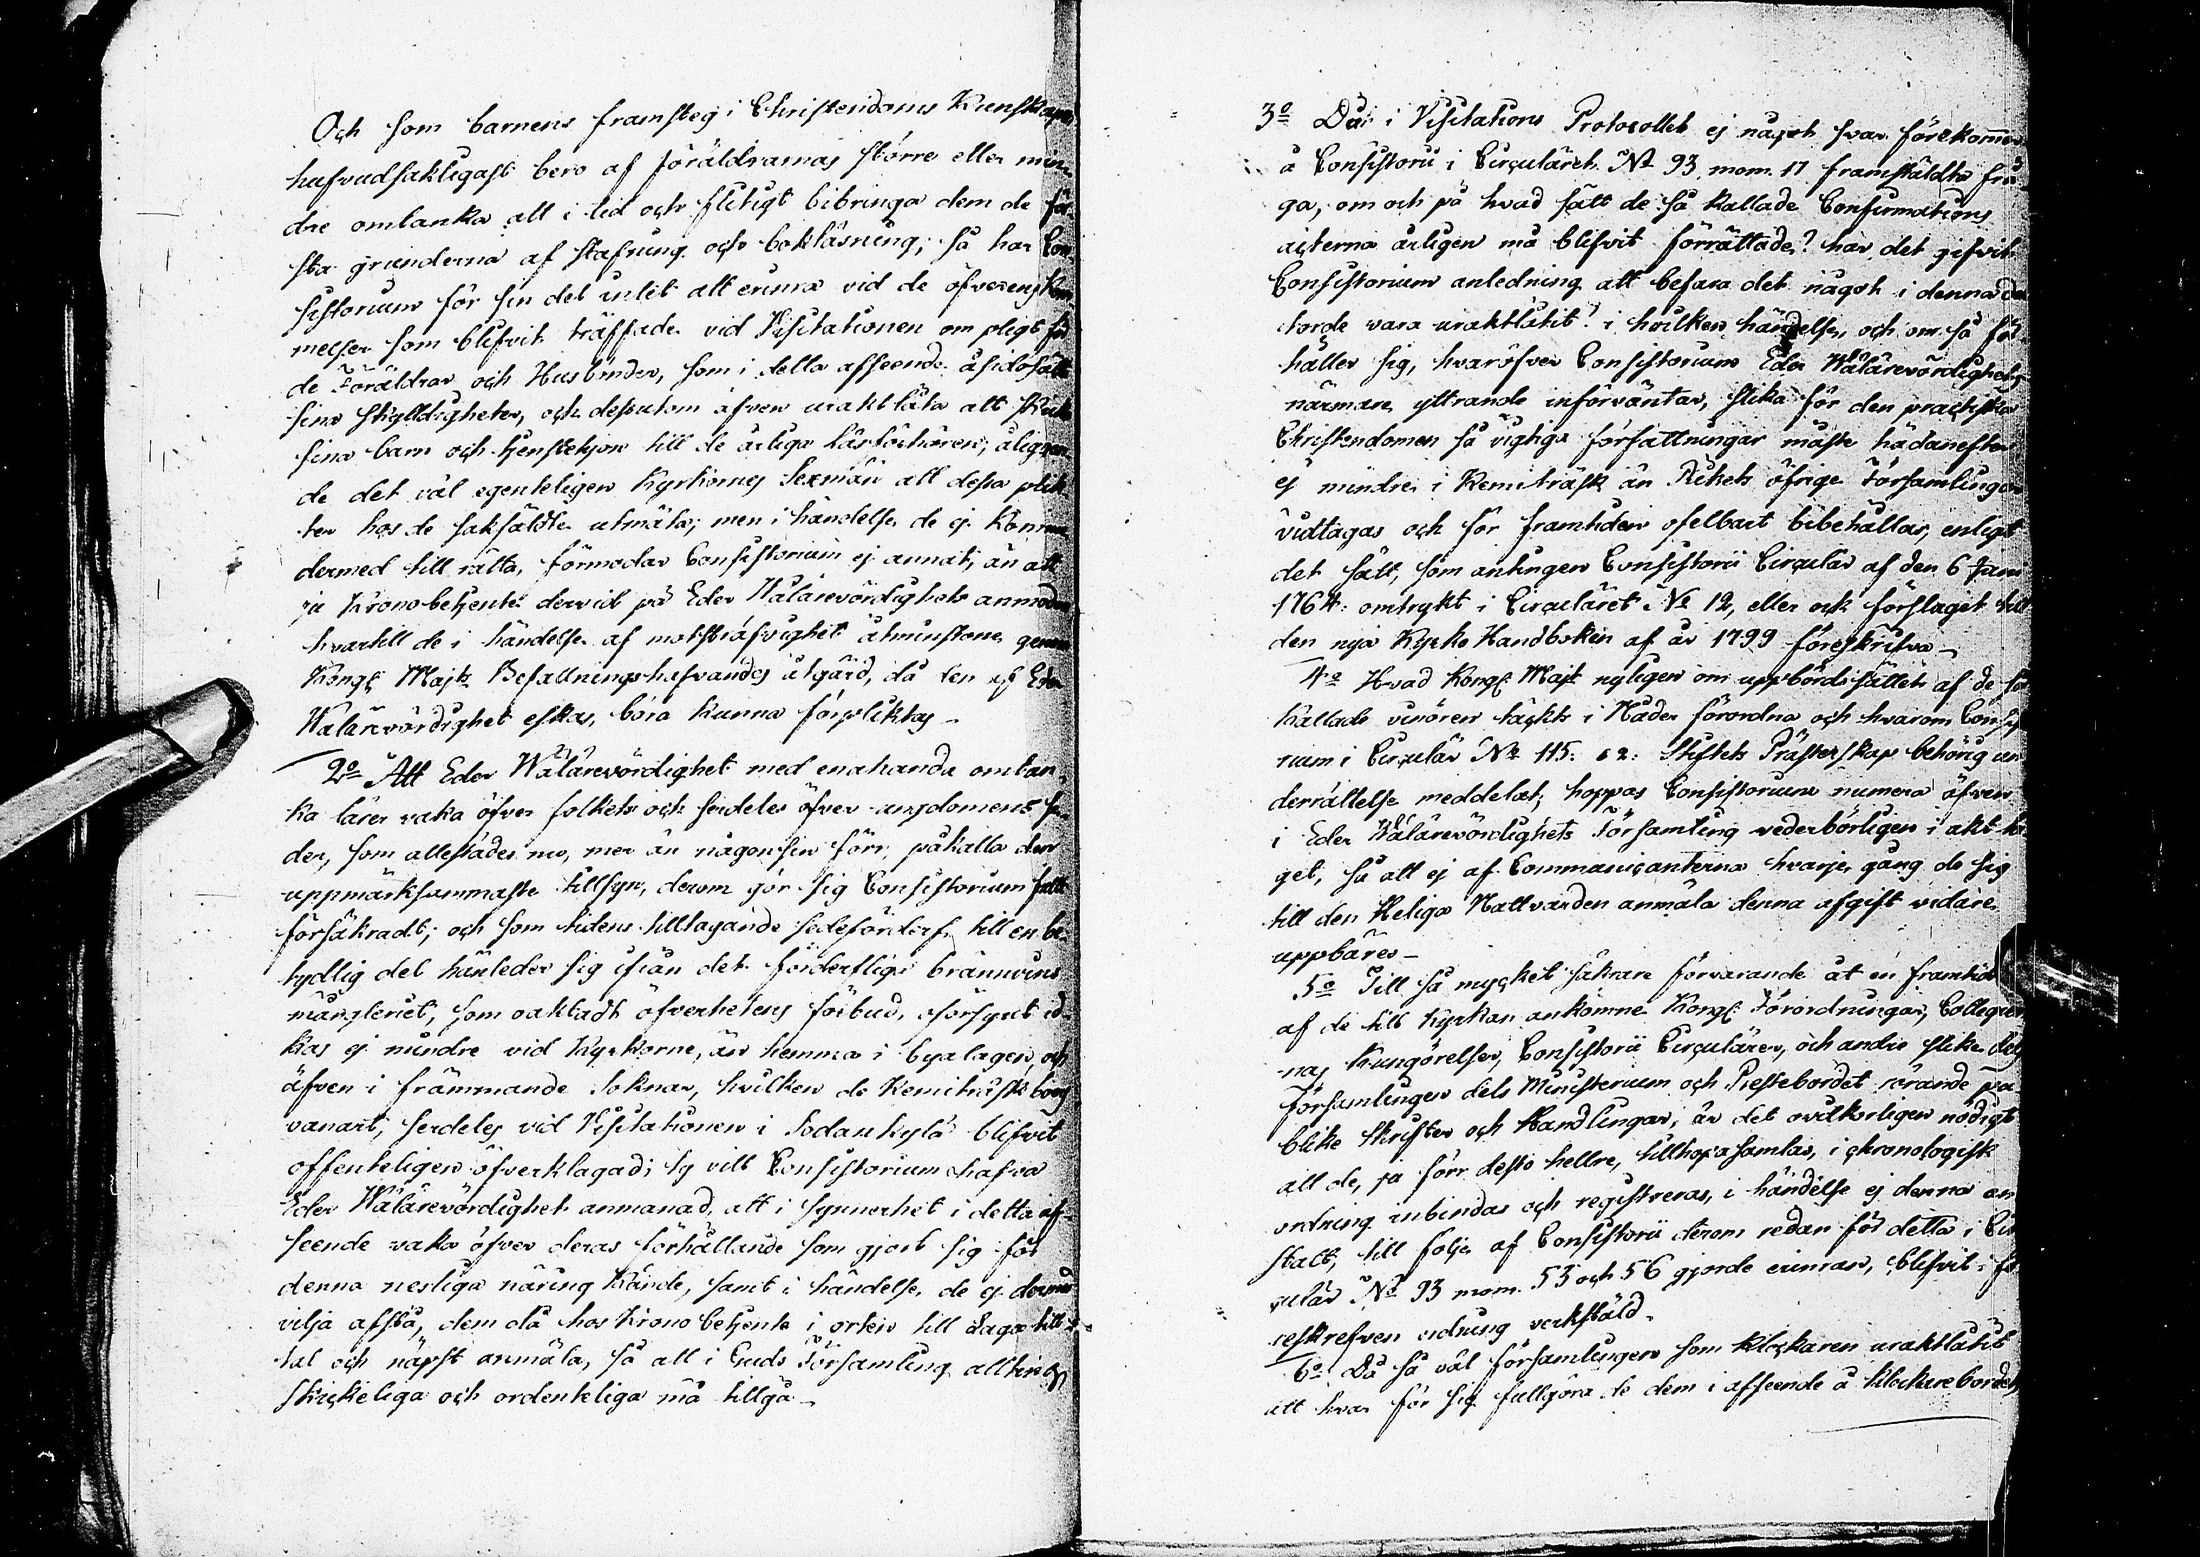 Och som barnens framsteg i Christendoms Kunskapen
hufvudsakligast bero af föräldrarnas större eller min-
dre omtanka att i tid och flitigt bibringa dem de för-
sta grunderna af stafning och bokläsning; så har Con-
sistorium för sin del intet att erinra vid de öfverenskom
melser som blifvit träffade vid Visitationen om pligt för
de Föräldrar och Husbönder, som i detta afseende åsidosätta
sina skylldigheter, och dessutom äfven uraktlåta att skicka
sina barn och tjenstehjon till de årliga läsförhören; åliggan
de det väl egenteligen Kyrkornes Sexmän att dessa plik-
ter hos de sakfälldte utmäta; men i händelse de ej komma
dermed till rätta, förmodar Consistorium ej annat, än att
ju Kronobetjente dervid på Eder Wälärevördighets anmodan
hvartill de i händelse af motsträfvighet åtminstone genom
Kongl Majts Befallningshafvandes åtgärd, då den af Eder
Wälärevördighet eskas, böra kunna förpliktas _
2o Att Eder Wälärevördighet med enahanda omtan-
ka lärer vaka öfver folkets och serdeles öfver ungdomens se-
der, som allestädes nu, mer än någonsin förr, påkalla den
uppmärksammaste tillsyn, derom gör sig Consistorium fullt
försäkradt; och som tidens tilltagande sedeförderf till en be-
tydlig del härleder sig ifrån det förderfliga brännvins
mångleriet, som oaktadt öfverhetens förbud, oförsynt id-
kas ej mindre vid Kyrkorne, än hemma i byalagen, och
äfven i främmande Soknar, hvilken de Kemiträsk boers
vanart, serdeles vid Visitationen i Sodankylä blifvit
offenteligen öfverklagad; ty vill Consistorium hafva
Eder Wälärevördighet anmanad, att i synnerhet i detta af-
seende vaka öfver deras förhållande som gjort sig för
denna nesliga näring kände, samt i händelse de ej dermed
vilja afstå, dem då hos Krono betjente i orten till Laga till-
tal och näpst anmäla, så att i Guds Församling allting
skickeliga och ordenteliga må tillgå _
3o Då i Visitations Protocollet ej något svar förekommer
å Consistorii i Circuläret No 93 mom. 17 framställdta frå-
ga, om och på hvad sätt de så kallade Confirmations
acterna årligen må blifvit förrättade? har det gifvit
Consistorium anledning att befara det något i denna del
torde vara uraktlåtit! i hvilken händelse, och om så för-
håller sig, hvaröfver Consistorium Eder Wälärevördighets
närmare yttrande införväntar, slika för den practiska
Christendomen så vigtiga författningar måste hädanefter
ej mindre i Kemiträsk än Rikets öfrige Församlingar
vidtagas och för framtiden ofelbart bibehållas, enligt
det sätt, som antingen Consistorii Circulär af den 6 Juni
1764. omtrykt i Circuläret No 12, eller ock förslaget till
den nya Kyrko Handboken af år 1799 föreskrifva _
4o Hvad Kongl Majt nyligen om uppbördssättet af de så
kallade vinören täckts i Nåder förordna och hvarom Consisto
rium i Circulär No 115. Stiftets Prästerskap behörig un
derrättelse meddelat, hoppas Consistorium numera äfven
i Eder Wälärevördighets Församling vederbörligen i akt ta-
get, så att ej af Communicanterna hvarje gång de sig
till den Heliga Nattvarden anmäla denna afgift vidare
uppbäres _
5o Till så mycket säkrare förvarande åt en framtid
af de till Kyrkan ankomne Kongl Förordningar, Collegier
nas Kungörelser, Consistorii Circulärer, och andre slike dels
Församlingen dels Ministerium och Prestebordet rörande pu
blike Skrifter och Handlingar, är det ovilkorligen nödigt
att de, ju förr desto hellre, tillhopa samlas, i chronologisk
ordning inbindas och registreras, i händelse ej denna an
stalt, till följe af Consistorii derom redan för detta i Cir
culär No 93 mom. 53 och 56 gjorde erinran, blifvit i fö
reskrefven ordning verkstäld _
6o Då så väl församlingen som Klockaren uraktlåtit
att hvar för sig fullgöra de dem i afseende å klockarebordet,